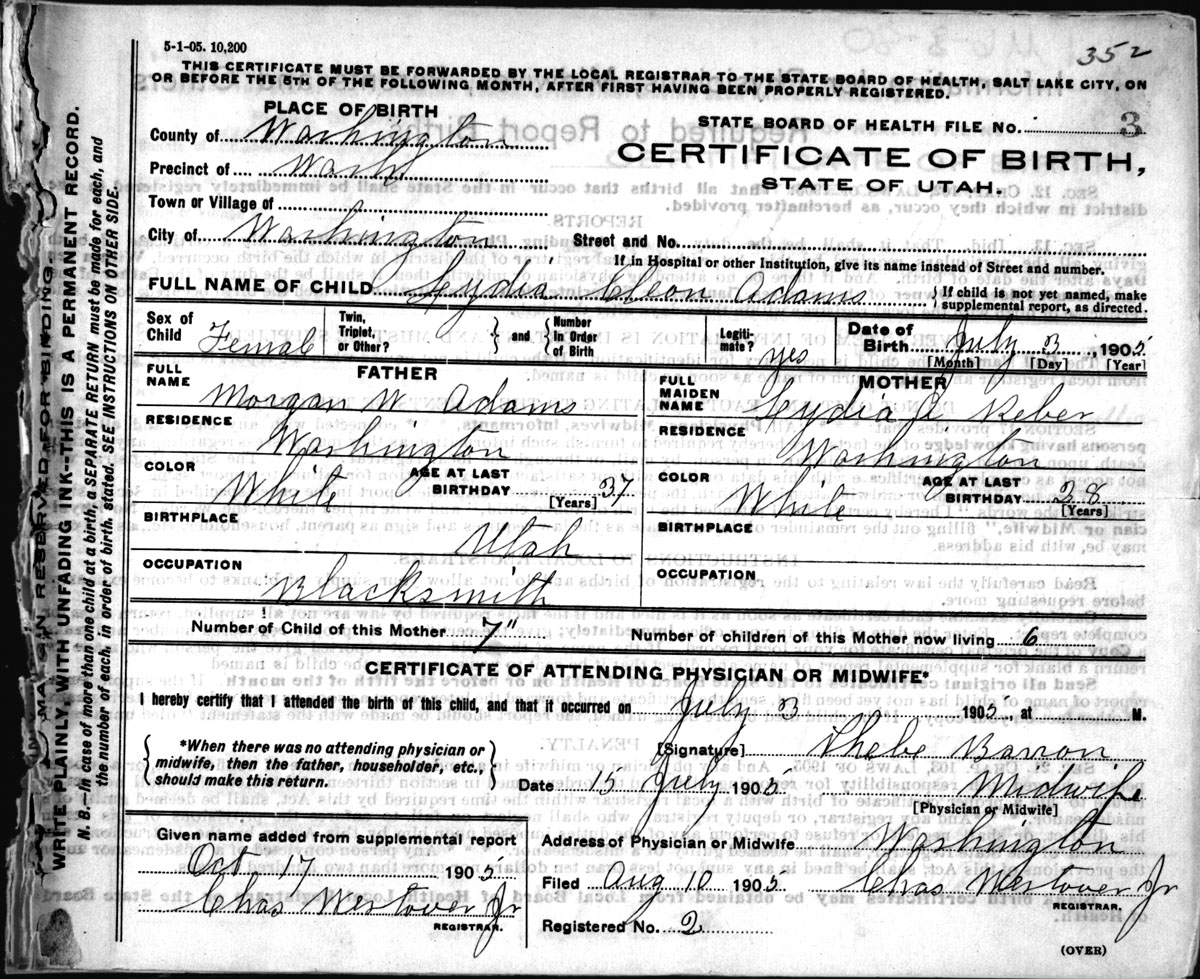 5-1-05. 10,200
352
THIS CERTIFICATE MUST BE FORWARDED BY THE LOCAL REGISTRAR TO THE STATE BOARD OF HEALTH, SALT LAKE CITY, ON
OR BEFORE THE 5TH OF THE FOLLOWING MONTH, AFTER FIRST HAVING BEEN PROPERLY REGISTERED.
PLACE OF BIRTH
STATE BOARD OF HEALTH FILE No. 3
County of Washington
CERTIFICATE OF BIRTH,
Precinct of Wash
STATE OF UTAH.
Town or Village of
City of Washington Street and No.
If in Hospital or other Institution, give its name instead of Street and number.
FULL NAME OF CHILD Lydia Cleon Adams { If child is not yet named, make supplemental report, as directed.
Sex of Child Female Twin, Triplet, or Other? } and { Number in Order of Birth Legiti-mate? yes Date of Birth July 3, 1905
[Month] [Day] [Year]
FATHER
FULL NAME Morgan W Adams
RESIDENCE Washington
COLOR White AGE AT LAST BIRTHDAY 37 [Years]
BIRTHPLACE Utah
OCCUPATION Blacksmith
MOTHER
FULL MAIDEN NAME Lydia A Reber
RESIDENCE Washington
COLOR White AGE AT LAST BIRTHDAY 28 [Years]
BIRTHPLACE
OCCUPATION
Number of Child of this Mother 7" Number of children of this Mother now living 6
CERTIFICATE OF ATTENDING PHYSICIAN OR MIDWIFE*
I hereby certify that I attended the birth of this child, and that it occurred on July 3, 1905, at M.
{ *When there was no attending physician or midwife, then the father, householder, etc., should make this return. }
[Signature] Phebe Barron
Date 15 July 1905 Midwife
[Physician or Midwife]
Given name added from supplemental report
Oct 17 1905
Chas Westover Jr
REGISTRAR.
Address of Physician or Midwife Washington
Filed Aug 10 1905 Chas Westover Jr
REGISTRAR.
Registered No. 2
(OVER)
MARGIN RESERVED FOR BINDING
WRITE PLAINLY, WITH UNFADING INK--THIS IS A PERMANENT RECORD.
N. B. (In case of more than one child at a birth, a SEPARATE RETURN must be made for each, and
the number of each, in order of birth, stated. SEE INSTRUCTIONS ON OTHER SIDE.